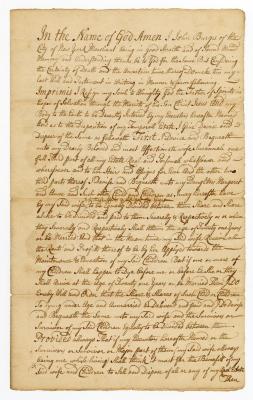 In the Name of God Amen I John Burges of the
City of New York Merchant being in Good Health and of Sound Mind
Memory and Understanding thanks be to God for the Same But Considering
the Certainty of Death and the Uncertain time thereof Do make this my
last Will and Testament in Writing in Manner following
Imprimis I Resign my Soul to Almighty God the Author of Spirits in
hopes of Salvation through the Merits of his Son Christ Jesus And my
Body to the Earth to be Decently Interred by my Executors hereafter Named
And as to the Disposition of my Temporal Estate I give Devise and
Dispose of the Same as followeth First I Devise and Bequeath
unto my Dearly Beloved and most Affectionate wife Susannah one
full third part of all my Estate Real and Personal whatsoever and
wheresoever and to her Heirs and Assigns for Ever And the other two
third parts thereof I Devise and Bequeath unto my Daughter Margaret
and
by my Said wife to be Equally Divided between them Share and Share
alike to be Divided and paid to them Severally & Respectively as or when
they Severally and Respectively Shall attain the age of Twenty one years
or be Married And that in the mean time my Said wife
the Rents and Profits thereof to be by her Applyed towards the
Maintenance & Education of my Said Children But if one or more of
my Children Shall happen to dye before me or before he She or they
Shall arrive at the Age of Twenty one years or be Married then I do
hereby Will and Order that the Share or Shares of Such Child or Children
So dying under Age and unmarried be
and Bequeath the Same unto my Said wife and the Survivors or
Survivor of my Said Children Equally to be divided between them
Provided always that if my Executors hereafter Named or the
Survivors or Survivor or Major part of them my Said wife always
being one while living Shall think it most for the Benefit of my
Said wife and Children to Sell and Dispose of all or any of my Real Estate
then